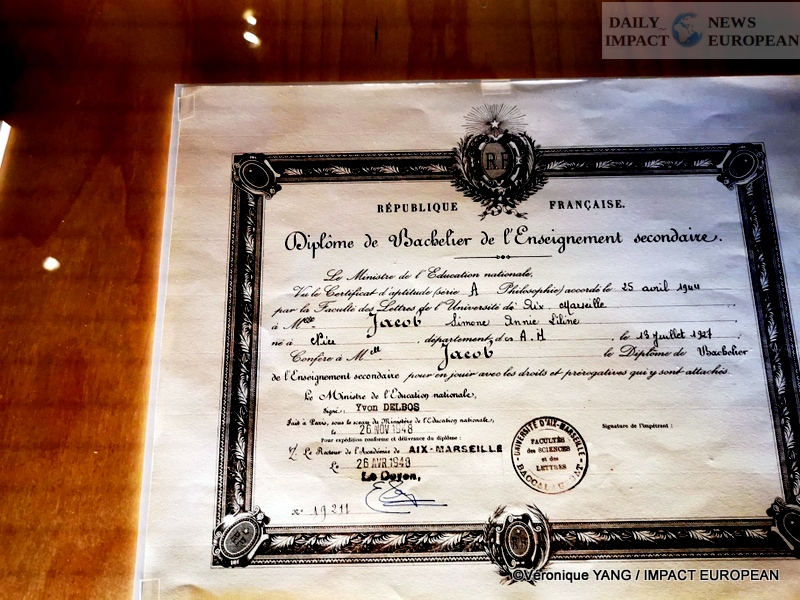 DAILY NEWS
IMPACT EUROPEAN
RF
RÉPUBLIQUE FRANÇAISE.
Diplôme de Bachelier de l'Enseignement secondaire.
Le Ministre de l'Education nationale,
Vu le Certificat d'aptitude (série A Philosophie) accordé le 25 avril 1944
par la Faculté des Lettres de l'Université de Aix Marseille
à Melle Jacob Simone Annie Liline
né à Nice, département des A.M, le 13 juillet 1927
Confère à Melle Jacob le Diplôme de Bachelier
de l'Enseignement secondaire pour en jouir avec les droits et prérogatives qui y sont attachés.
Le Ministre de l'Education nationale,
Signé: Yvon DELBOS
Fait à Paris, sous le sceau du Ministère de l'Education nationale,
le 26 NOV 1948
Pour expédition conforme et délivrance du diplôme:
Signature de l'impétrant:
Le Recteur de l'Académie de AIX-MARSEILLE
Le 26 AVR 1949
Le Doyen,
N° 19211
UNIVERSITÉ D'AIX-MARSEILLE
FACULTÉS
des SCIENCES
et des
LETTRES
BACCALAURÉAT
©Véronique YANG / IMPACT EUROPEAN